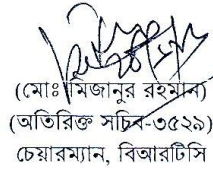 (মোঃ মিজানুর রহমান)
(অতিরিক্ত সচিব-৩৫২৯)
চেয়ারম্যান, বিআরটিসি